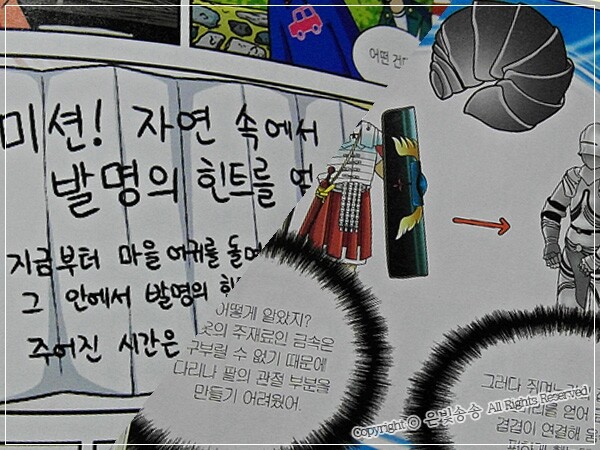 어떤
미션! 자연 속에서
발명의 힌트를
지금부터 마을 어귀를
그 안에서 발명의
주어진 시간은
어떻게 알았지?
주재료인 금속은
구부릴 수 없기 때문에
다리나 팔의 관절 부분을
만들기 어려웠어.
그러다
얻어
겹겹이 연결해
Copyright ⓒ 은빛송송 All Rights Reserved